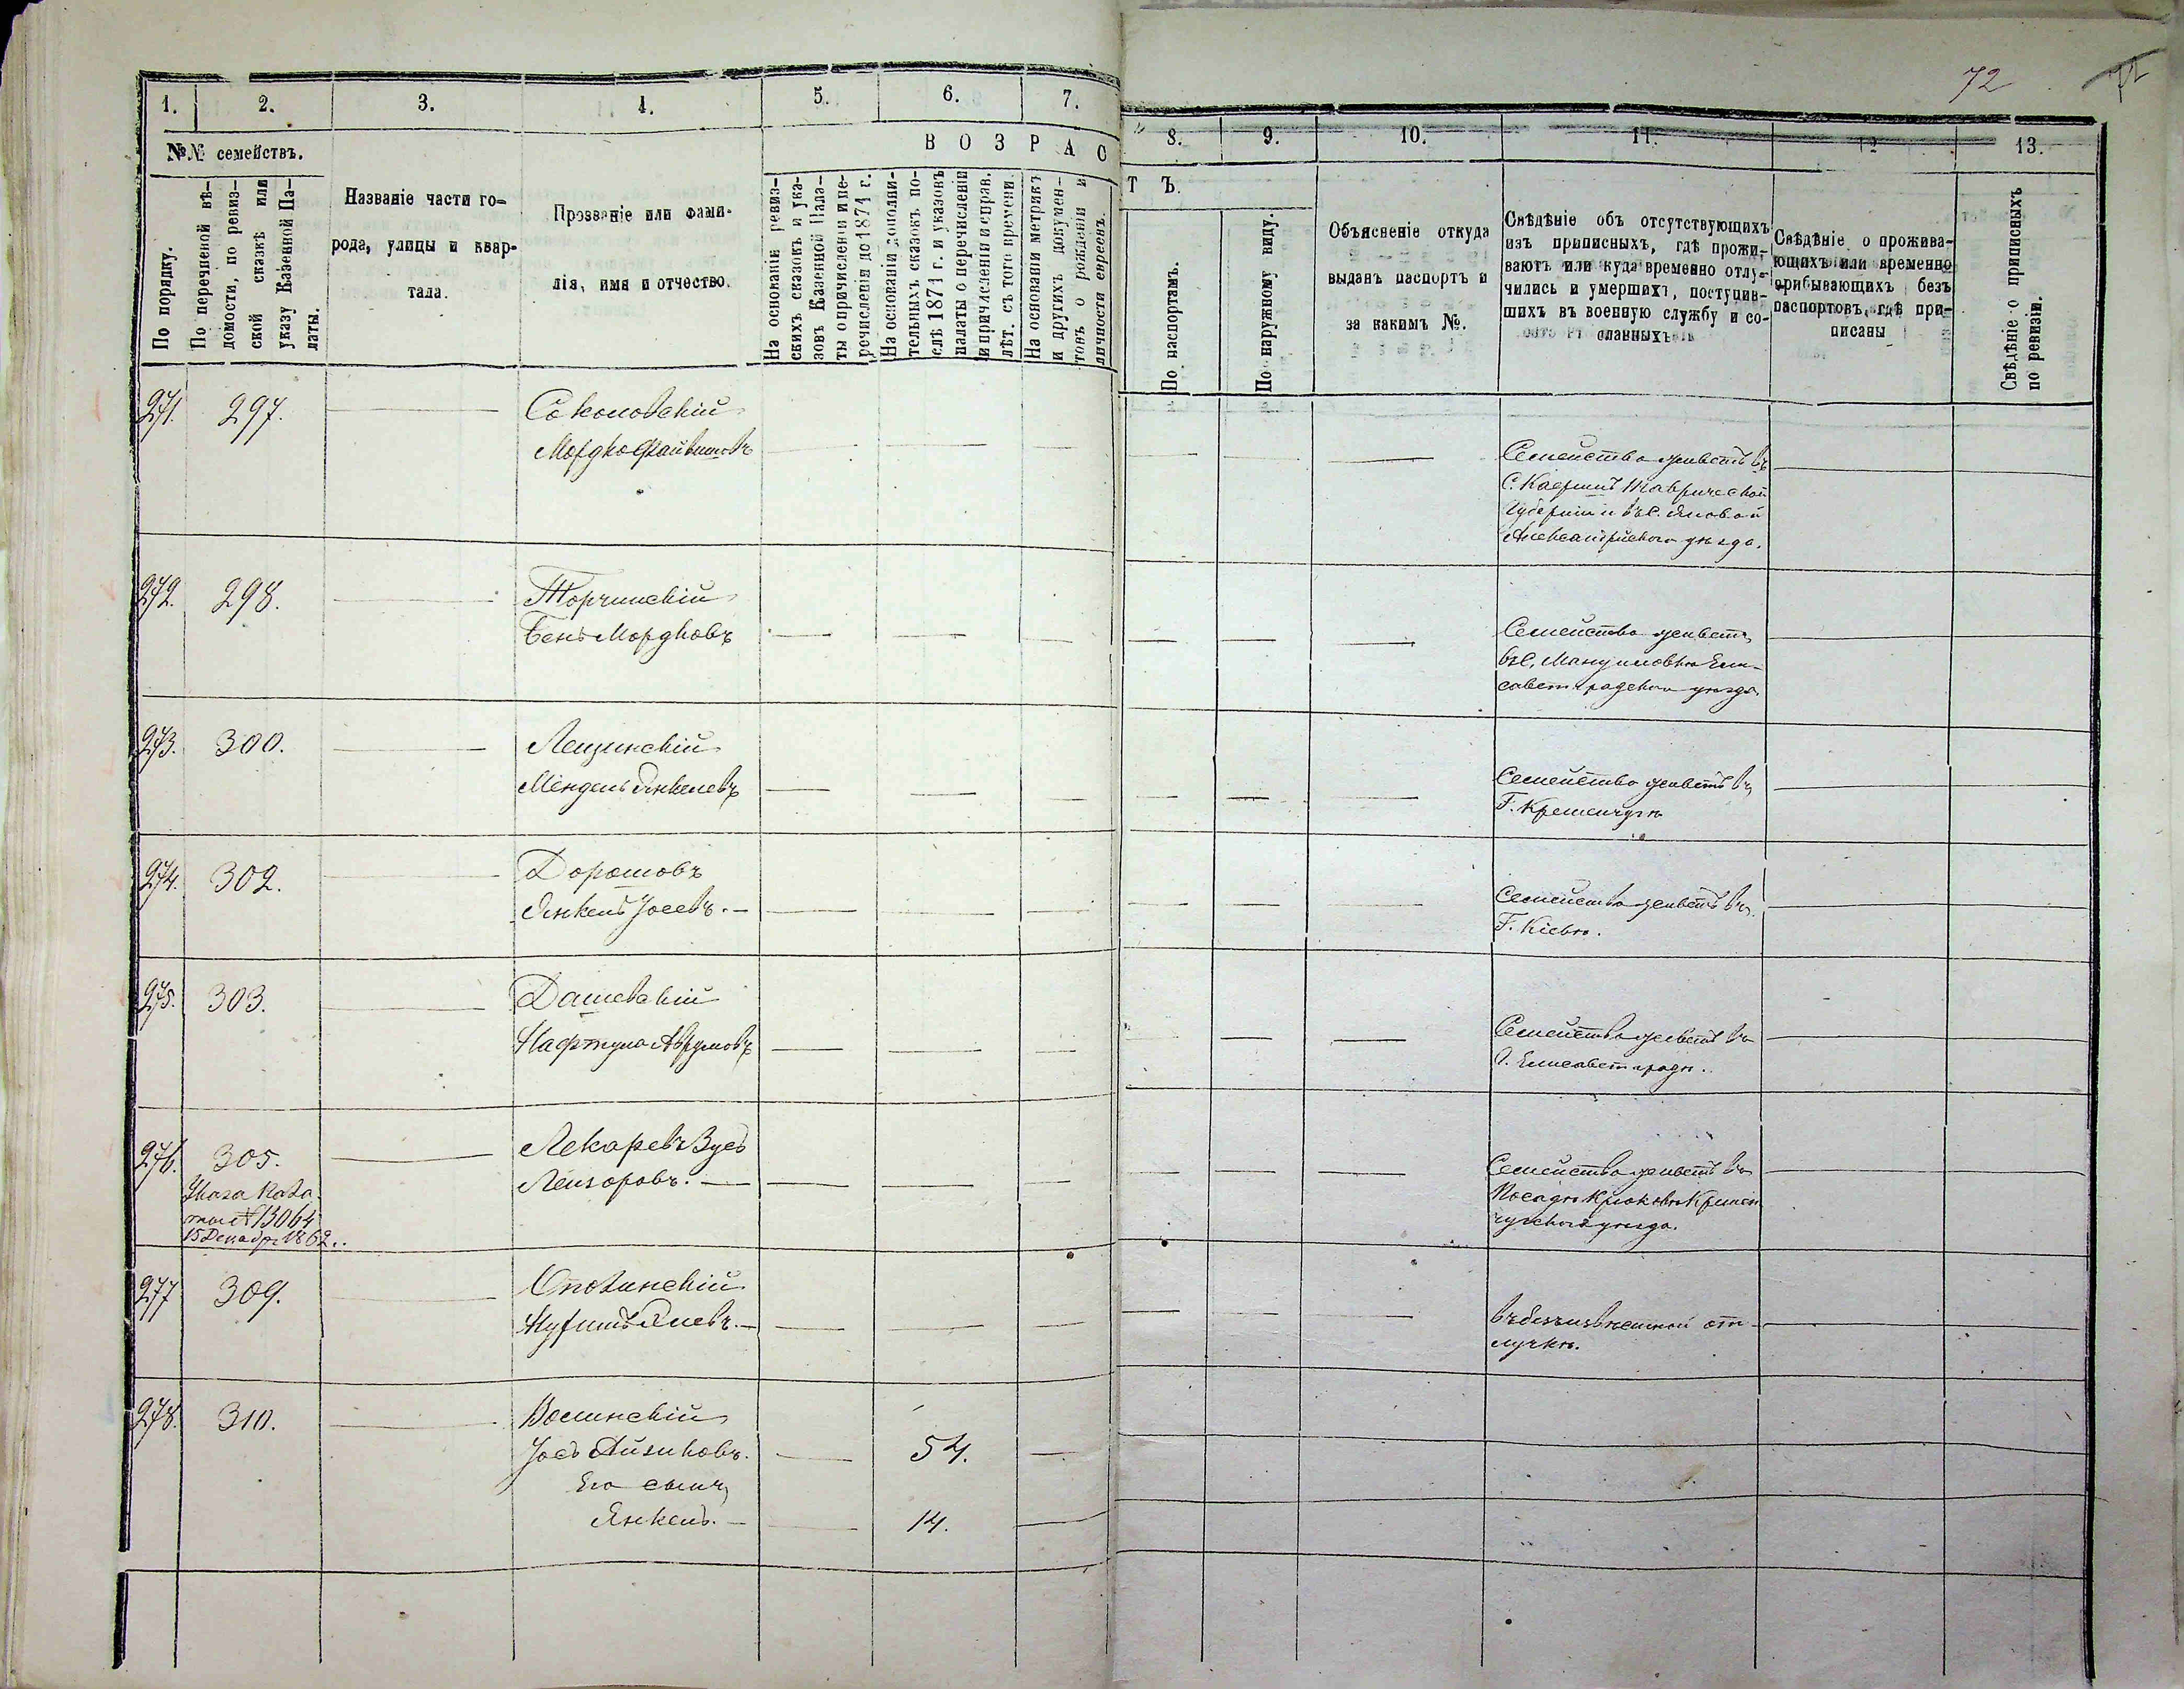 72
1.
2.
3.
4.
5.
6.
7.
8.
9.
10.
11.
12
13.
№№ семействъ.
В О З Р А С
Т Ъ.
По порядку.
По перечневой вѣ-
домости, по ревиз-
ской сказкѣ или
указу Казенной Па-
латы.
Названіе части го-
рода, улицы и квар-
тала.
Прозваніе или фами-
лія, имя и отчество.
На основаніи ревиз-
скихъ сказокъ и ука-
зовъ Казенной Пала-
ты о причисленіи и пе-
речисленіи до 1871 г.
На основаніи дополни-
тельныхъ сказокъ по-
слѣ 1871 г. и указовъ
палаты о перечисленіи
и причисленіи и справ.
лѣт. съ того времени
На основаніи метрикъ
и другихъ докумен-
товъ о рожденіи и
личности евреевъ.
По паспортамъ.
По наружному виду.
Объясненіе откуда
выданъ паспортъ и
за какимъ №.
Свѣдѣніе объ отсутствующихъ
изъ приписныхъ, гдѣ прожи-
ваютъ или куда временно отлу-
чились и умершихъ, поступив-
шихъ въ военную службу и со-
сланныхъ
Свѣдѣніе о прожива-
ющихъ или временно
прибывающихъ безъ
паспортовъ, гдѣ при-
писаны
Свѣдѣніе о приписныхъ
по ревизіи.
271. 297. Соколовскій
Мордко Файвишовъ
Семейство живетъ въ
С. Каерших Таврической
Губерніи и въ с. Яновой
Александрійскаго уѣзда.
272. 298. Торчинскій
Бень Мордковъ
Семейство живетъ
въ с. Мануиловкѣ Ели-
саветградскаго уѣзда.
273. 300. Лещинскій
Мендель Янкелевъ
Семейство живетъ въ
Г. Кременчугѣ
274. 302. Дорошовъ
Янкель Іосевъ.
Семейство живетъ въ
Г. Кіевѣ.
275. 303. Дашевскій
Нафтула Аврумовъ
Семейство живетъ въ
г. Елисаветградѣ.
276. 305. Лекаревъ Зусь
Лейзоровъ.
Указа Пала
ты № 13064
15 Декабр. 1862.
Семейство живетъ въ
Посадѣ Крюковѣ Кремен
чугскаго уѣзда.
277 309.
въ безъизвѣстной от-
лучкѣ.
278. 310. Волинскій
Іось Айзиковъ. 54.
Его сынъ
Янкель. 14.